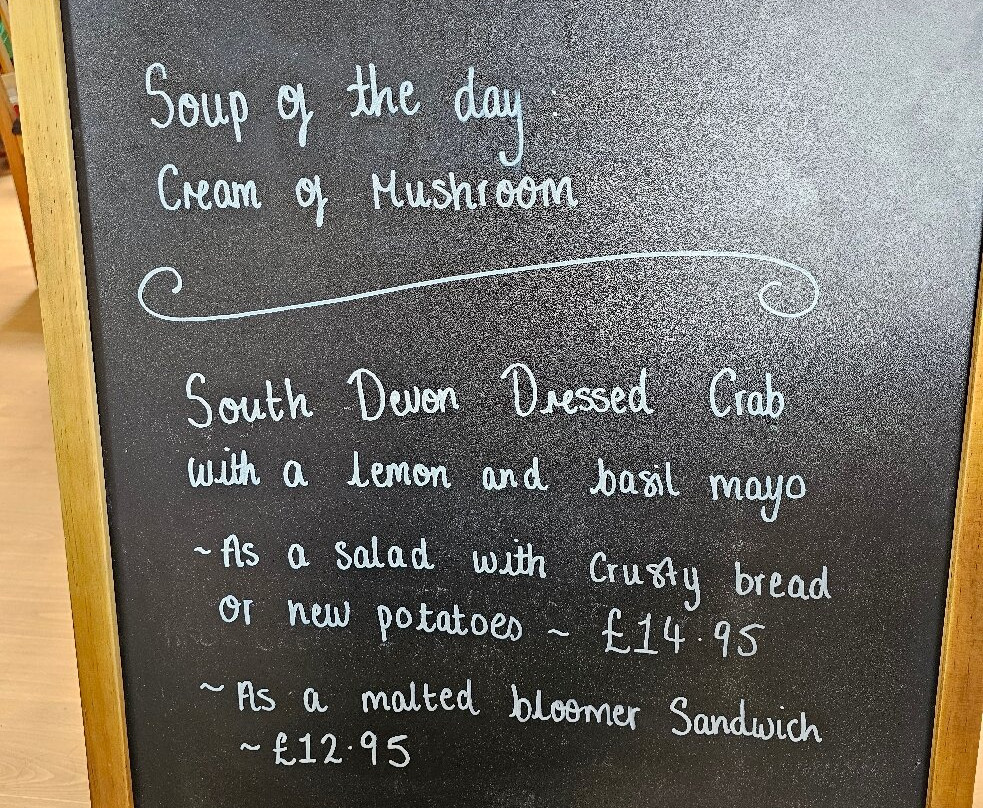 Soup of the day:
Cream of Mushroom
South Devon Dressed Crab
with a lemon and basil mayo
~ As a salad with Crusty bread
or new potatoes ~ £14.95
~ As a malted bloomer Sandwich
~ £12.95